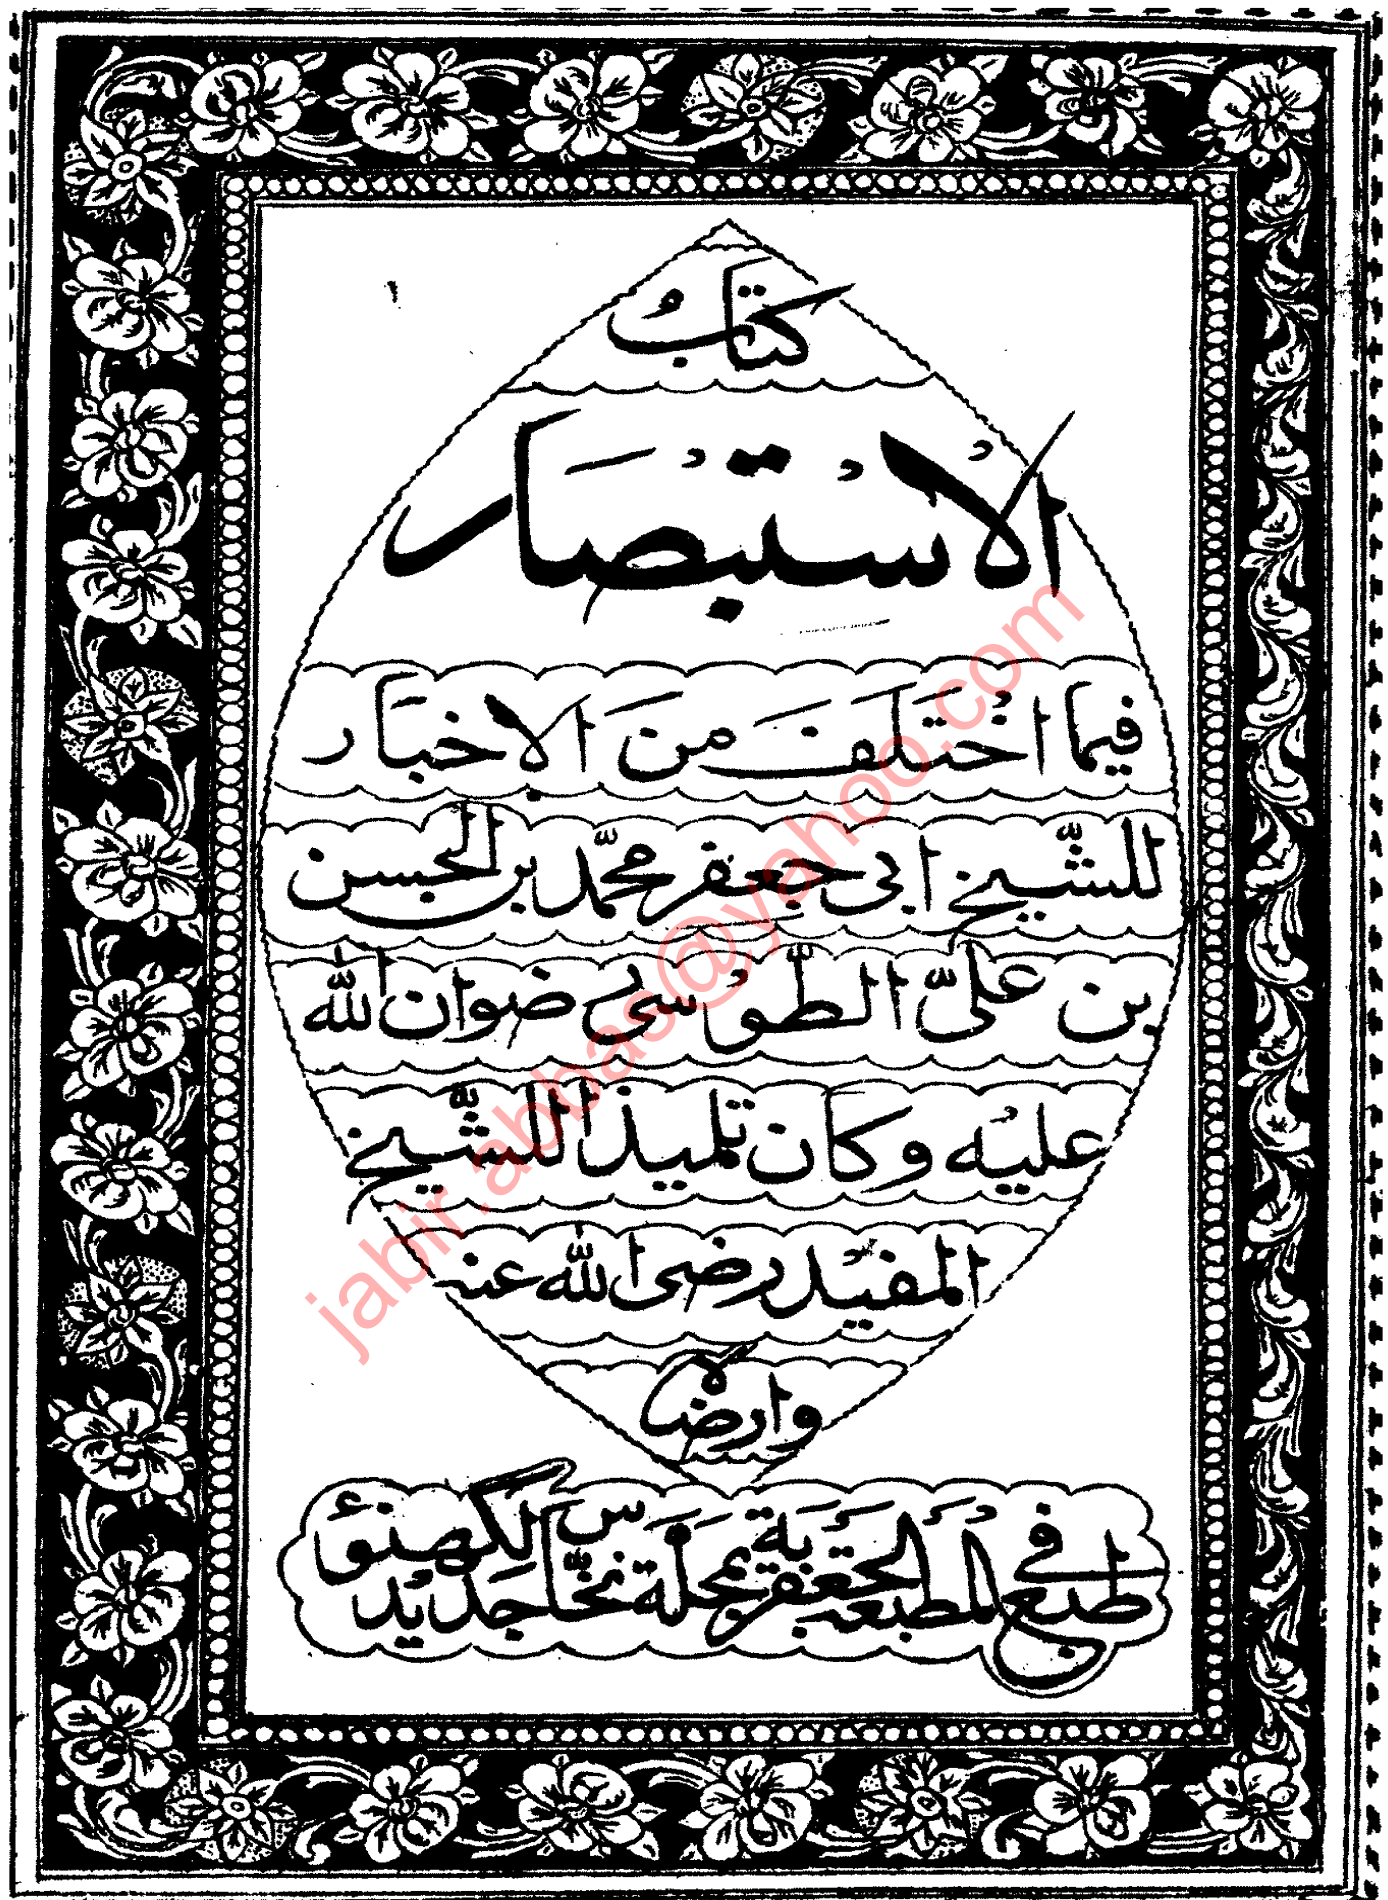 كتابُ
الاُسْتبصَار
فيما اخُتَلفَ مِنَ الاِخبَار
للشّيخ ابي جعفر محمّد بن الحسن
بن علىّ الطّوُسي رضوان الله
عليُه وكان تلميذًا للشّيخ
المفيُد رضى الله عنه
وارضاه
طبع فى المُطَبَعة الجَعفَرَبية بمحلَة نخّاس جديُد لكهنؤ
jabir.abbas@yahoo.com